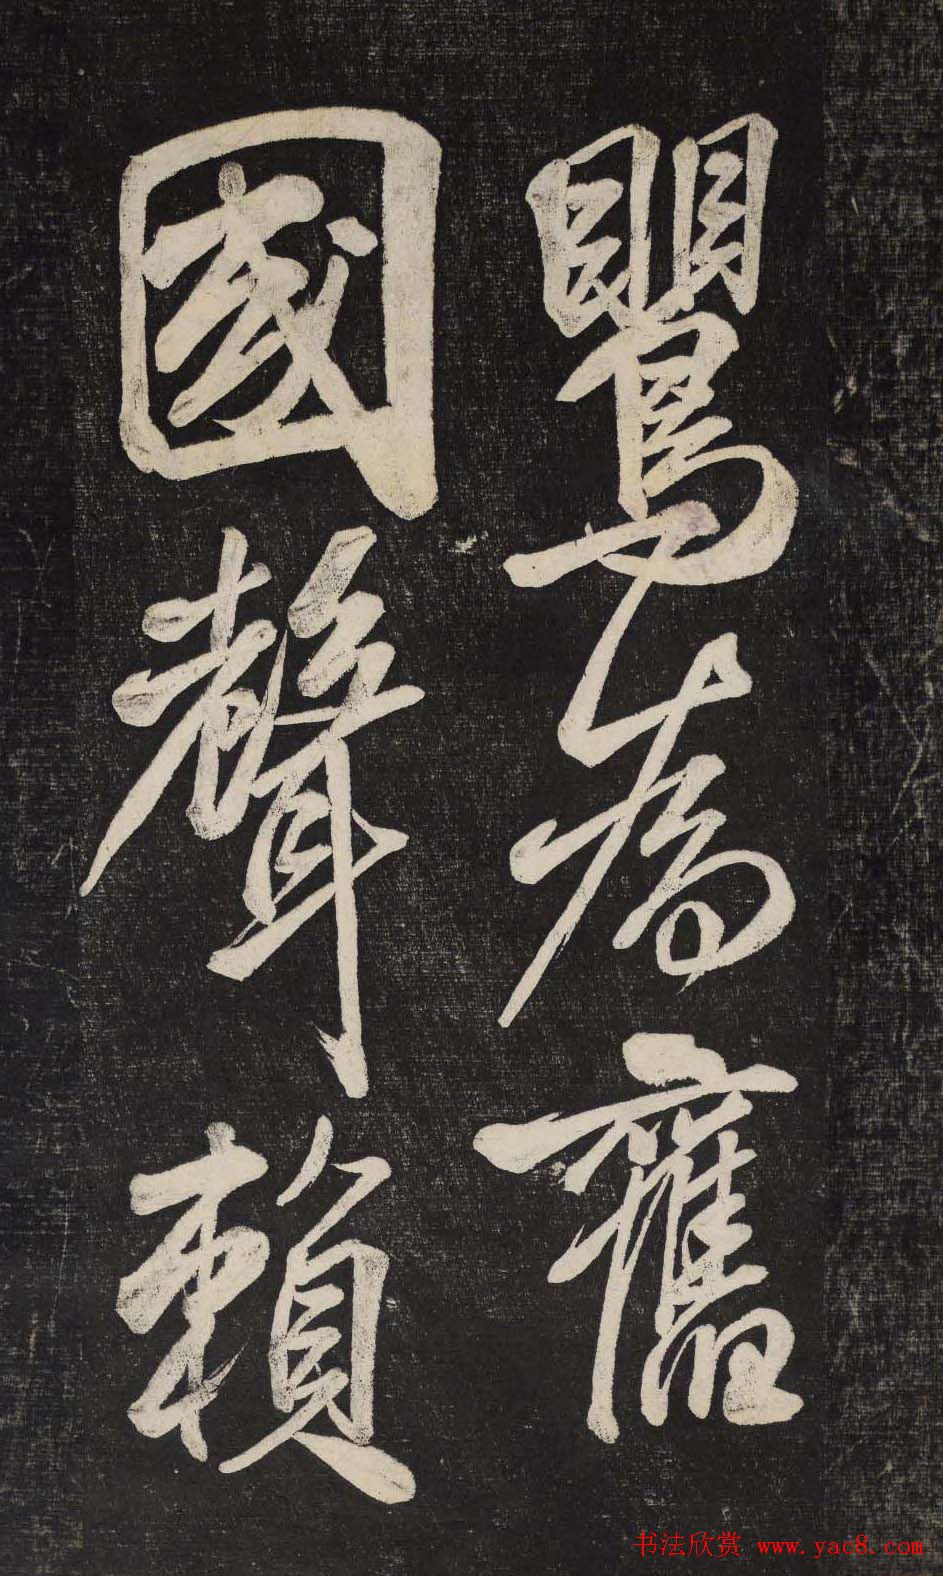 鸎為舊
國聲賴
书法欣赏 www.yac8.com